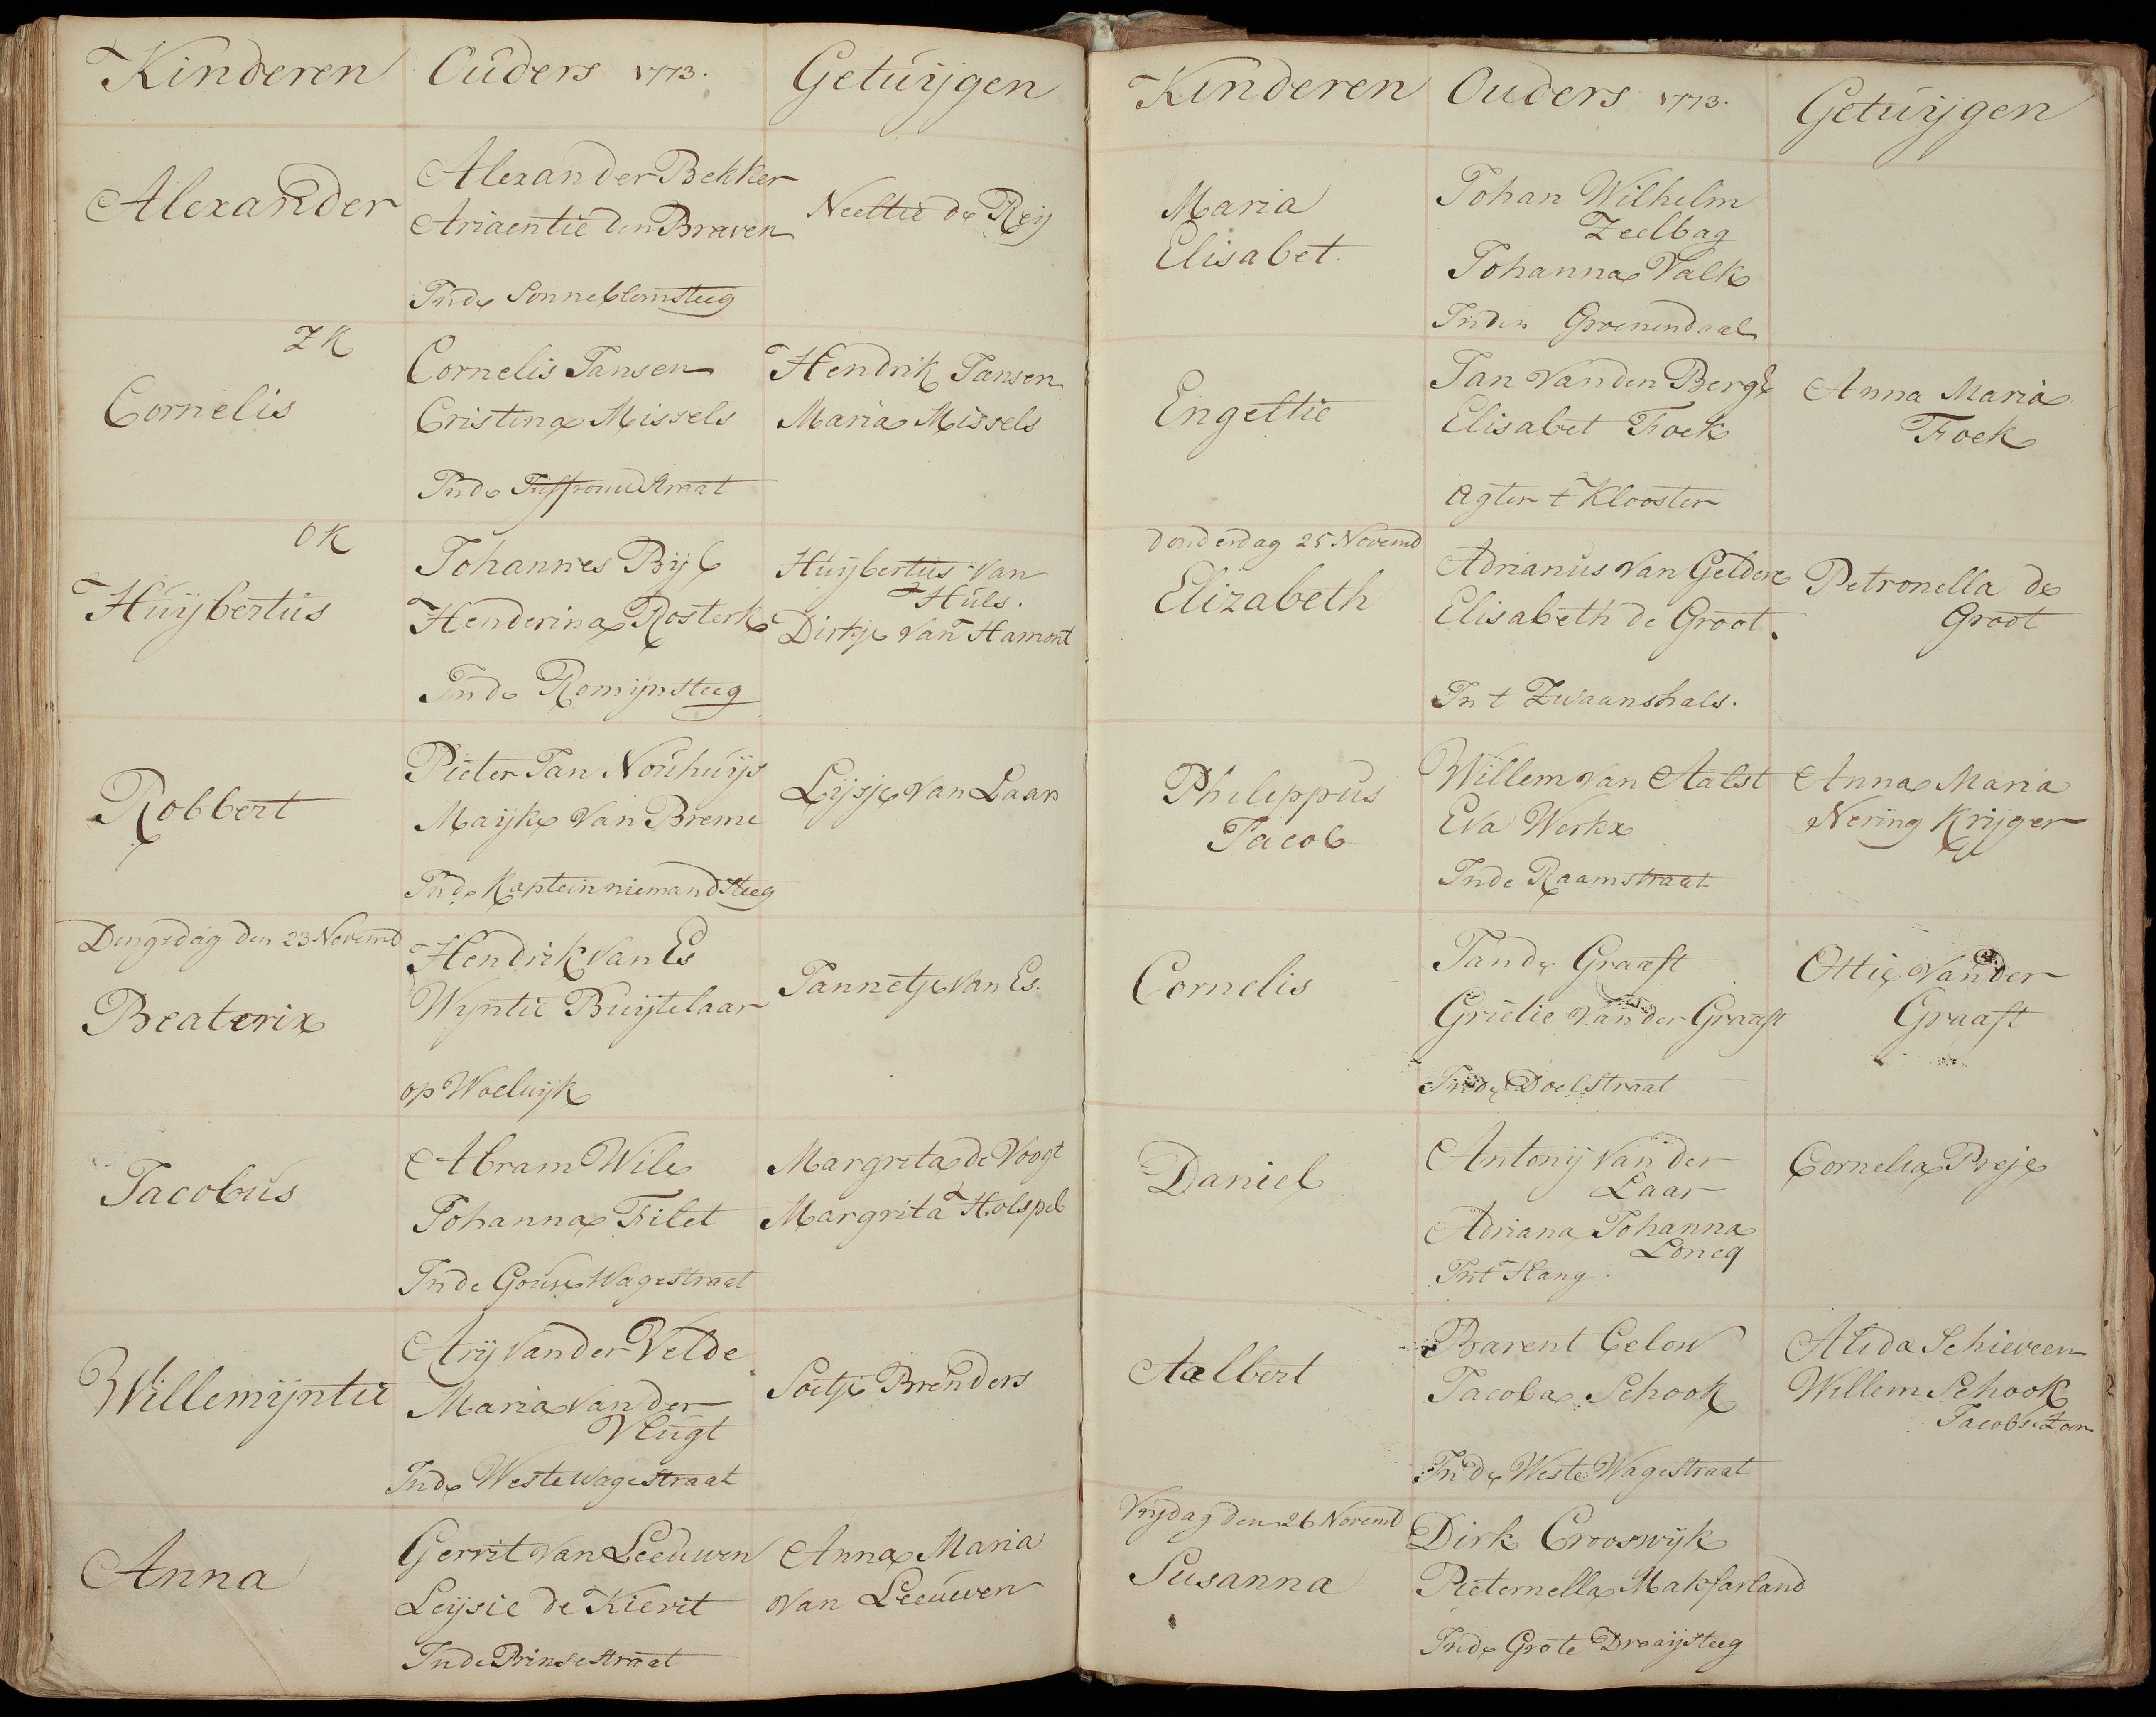 Kinderen Ouders 1773. Getuijgen
Alexander
Alexander Bekker
Ariaentie den Braven
Inde Sonneblomsteeg
Neeltie de Reij
ZK
Cornelis
Cornelis Jansen
Cristina Missels
Inde Juffrouwstraat
Hendrik Jansen
Maria Missels
OK
Huijbertus
Johannes Bijl
Henderina Rosterk
Inde Romijnsteeg
Huijbertus van
Huls.
Dirkje van Hamont
Robbert
Pieter Jan Nouhuijs
Maijke van Breme
Inde Kaptein niemandsteeg
Lijsje van Laar
Dingsdag den 23 Novemb
Beaterix
Hendrik van Es
Wijntie Buijtelaar
op Woelwijk
Jannetje van Es.
Jacobus
Abram Wile
Johanna Filet
Inde Gouse Wagestraat
Margreta de Voogt
Margrita Holspel
Willemijntie
Arij vander Velde
Maria vander
Vlugt
Inde Westewagestraat
Soetje Brenders
Anna
Gerrit van Leeuwen
Leijsie de Kievit
Inde Prinsestraat
Anna Maria
van Leeuwen
Kinderen Ouders 1773. Getuijgen
Maria
Elisabet.
Johan Wilhelm
Zeelbag
Johanna Valk
Inden Groenendaal
Engeltie
Jan Vanden Berge
Elisabet Foek
Agter t Klooster
Anna Maria
Foek
Donderdag 25 Novemb
Elizabeth
Adrianus van Gelder
Elisabeth de Groot.
In t Zwaanshals.
Petronella de
Groot
Phileppus
Jacob
Willem van Aalst
Eva Werkx
Inde Raamstraat
Anna Maria
Nering Krijger
Cornelis
Jande Graaft
Grietie van der Graaft
Inde Doelstraat
Ottie van der
Graaft
Daniel
Antonij van der
Laar
Adriana Johanna
Loncq
Int Hang.
Cornelia Preje
Aelbert
Barent Celow
Jacoba Schook
Inde Weste Wagestraat
Alida Schieveen
Willem Schook
Jacobse Zoon
Vrijdag den 26 Novemb
Susanna
Dirk Crooswijk
Pieternella Makfarland
Inde Grote Draaijsteeg